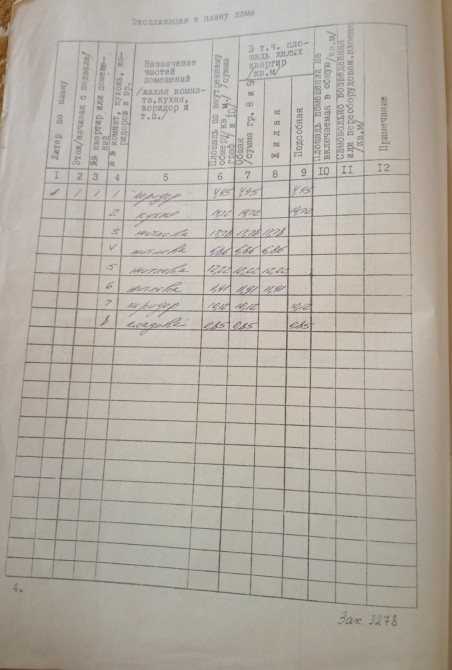 Экспликация к плану дома
Литер по плану
Этаж/начиная с подвала/
комнат, кухонь, ко-
Назначение
частей
помещений
/жилая комна-
та,кухня,
коридор и
т.п./
Площадь по внутреннему
обмеру/кв.м./сумма
граф 7 и 10/
В т.ч. пло-
щадь жилых
квартир
/кв.м/
Общая
/сумма гр. 8 и 9/
Жилая
Подсобная
Площадь помещения не
включаемая в общую/кв.м/
Самовольно возведенная
или переоборудован.площадь
/кв.м/
Примечание
1 2 3 4 5 6 7 8 9 10 11 12
1 1 1 коридор 4,95 4,95 4,95
2 кухня
3 жилая 17,78 17,78 17,78
жилая 6,86 6,86 6,86
5 жилая
6 жилая 11,91 11,91 11,91
7 коридор 10,12 10,12 10,12
8 кладовая 0,85 0,85 0,85
4.
Зах. 3278